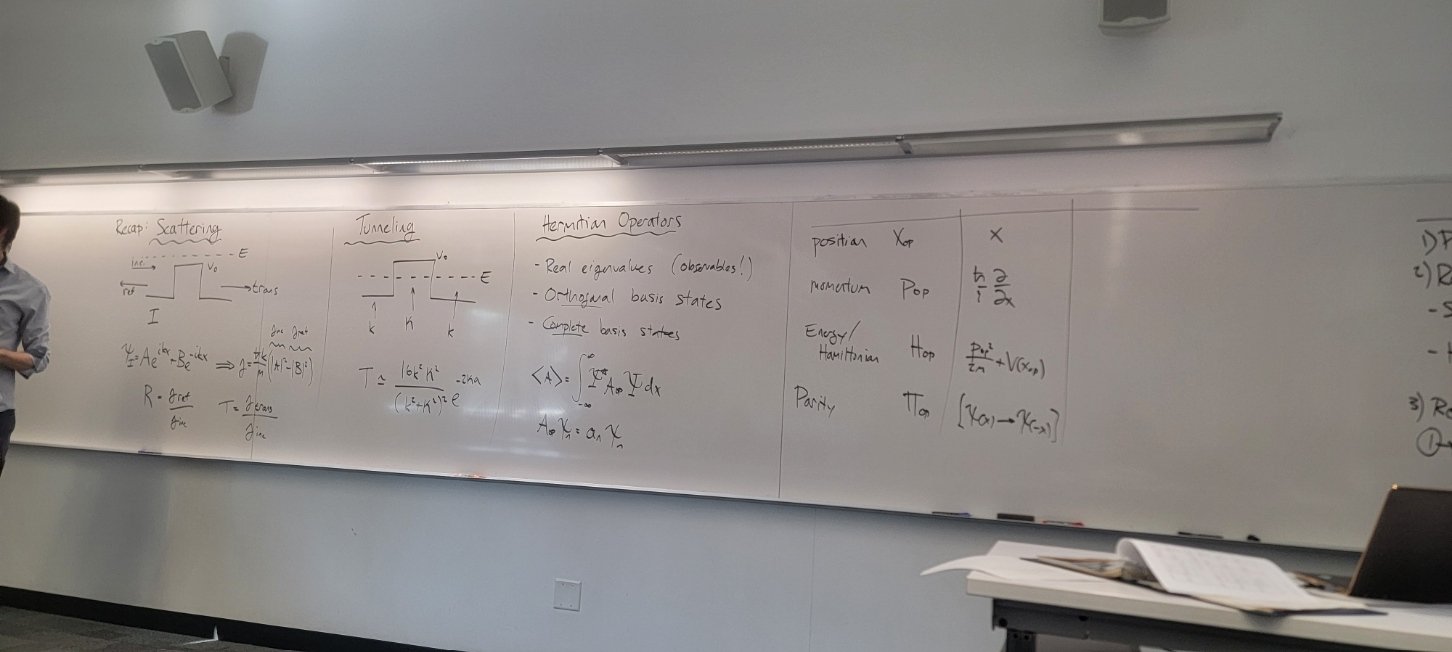 Recap: Scattering
E
inc.
V₀
ref
trans
I
j_inc j_ref
Ψ_I = Ae^{ikx} + Be^{-ikx} ⇒ j = ħk/m (|A|² - |B|²)
R = j_ref/j_inc T = j_trans/j_inc
Tunneling
V₀
E
k K k
T ≃ 16k²K²/(k²+K²)² e^{-2Ka}
Hermitian Operators
- Real eigenvalues (observables!)
- Orthogonal basis states
- Complete basis states
⟨A⟩ = ∫_{-∞}^{∞} Ψ* A_op Ψ dx
A_op χ_n = a_n χ_n
position X_op X
momentum P_op ħ/i ∂/∂x
Energy/
Hamiltonian H_op P_op²/2m + V(x_op)
Parity Π_op [χ(x) → χ(-x)]
1)
2)
3)
①